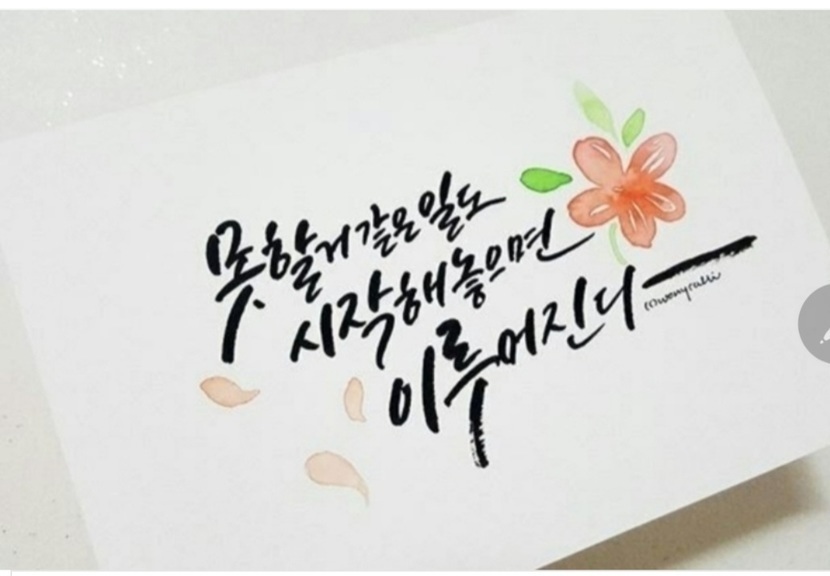 못할거같은일도
시작해놓으면
이루어진다